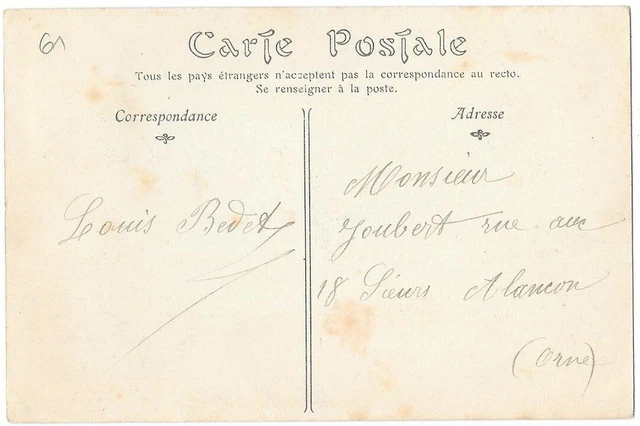 61
Carte Postale
Tous les pays étrangers n'acceptent pas la correspondance au recto.
Se renseigner à la poste.
Correspondance
Adresse
Louis Bedet
Monsieur
Joubert rue aux
18 Sieurs Alancon
(Orne)